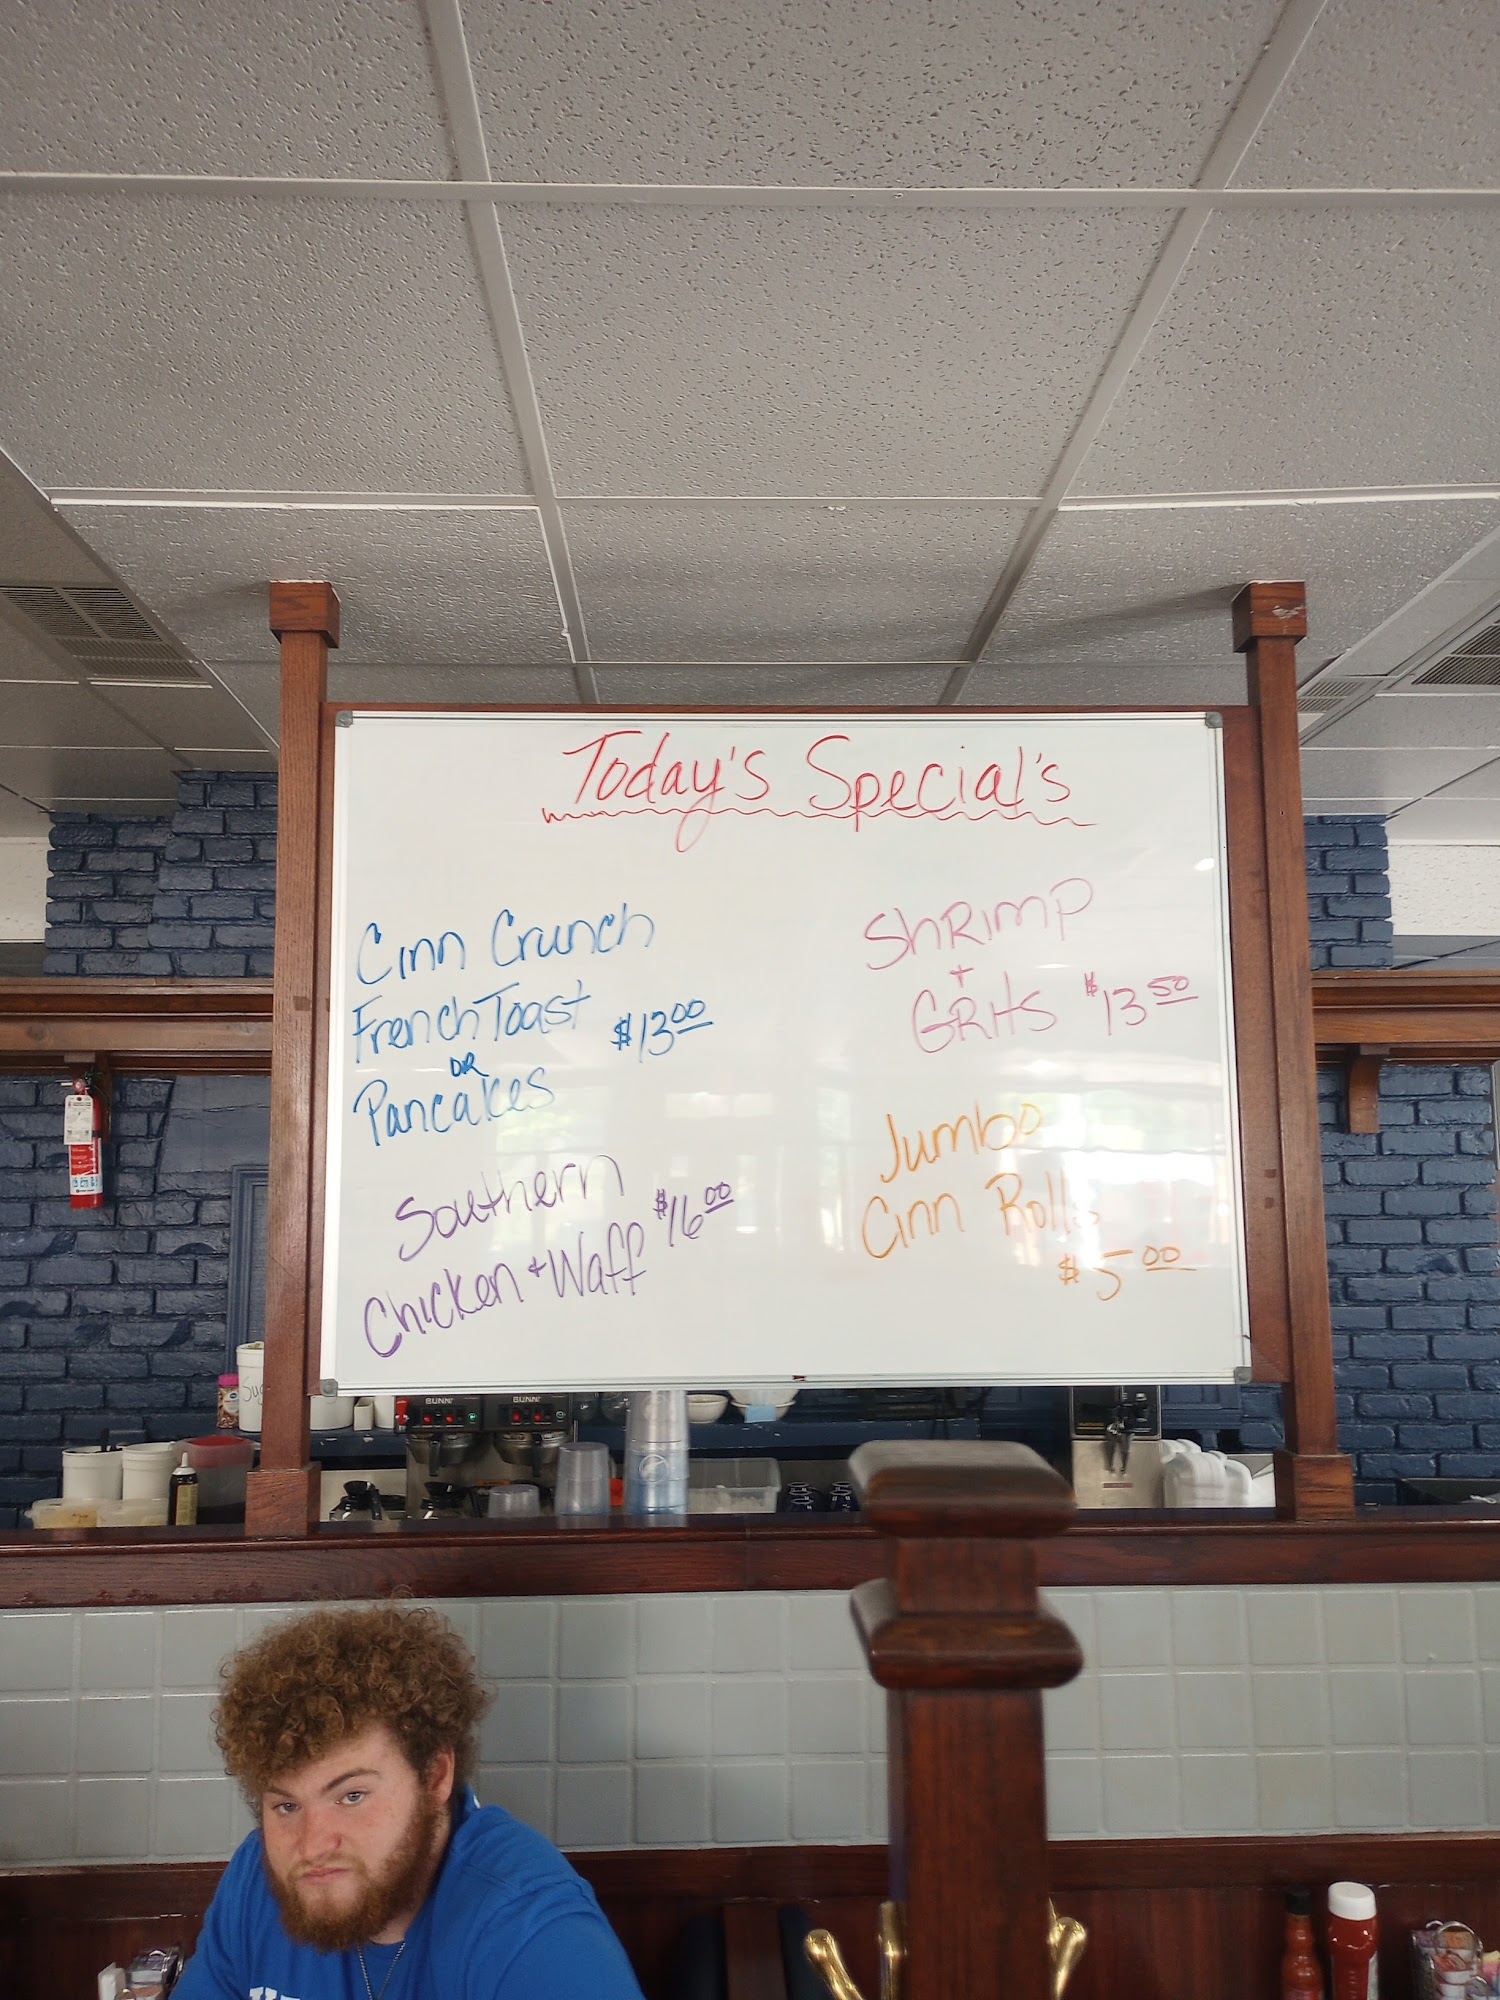 Today's Special's
Cinn Crunch
French Toast $13.00
OR
Pancakes
Southern
Chicken + Waff $16.00
Shrimp
+
Grits $13.50
Jumbo
Cinn Rolls
$5.00
BUNN BUNN